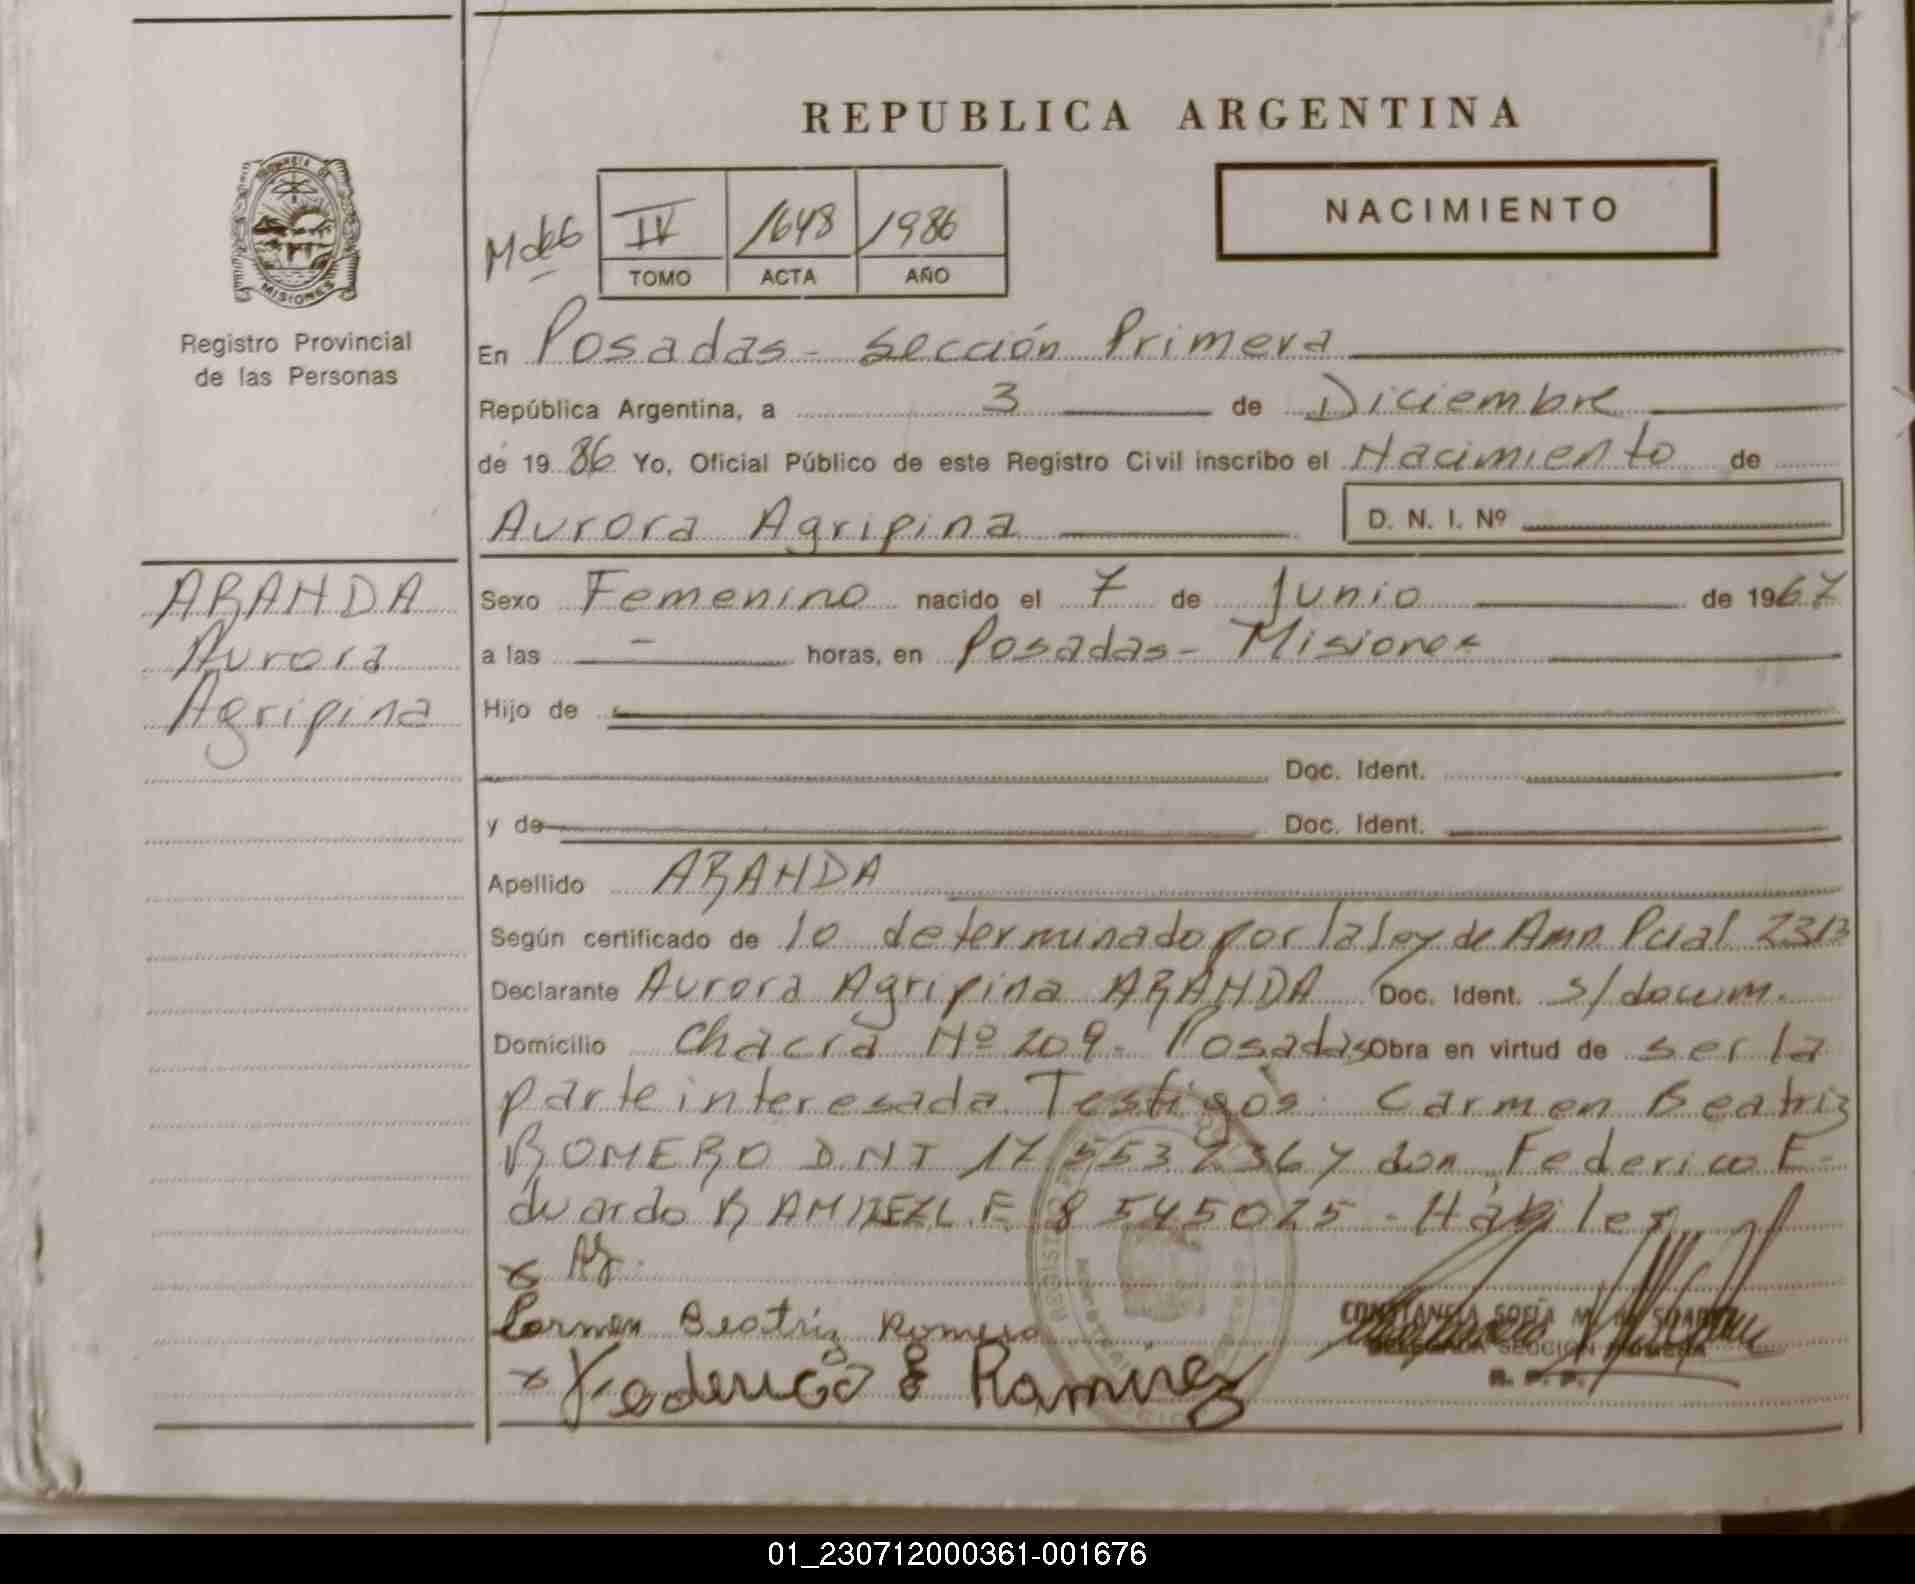 REPUBLICA ARGENTINA
NACIMIENTO
IV 1648 1986
TOMO ACTA AÑO
MISIONES
Registro Provincial
de las Personas
En Posadas - Sección Primera
República Argentina, a 3 de Diciembre
de 19 86 Yo, Oficial Público de este Registro Civil inscribo el Nacimiento de
Aurora Agripina D. N. I. Nº
ARANDA
Aurora
Agripina
Sexo Femenino nacido el 7 de Junio de 1967
a las - horas, en Posadas - Misiones
Hijo de
Doc. Ident.
y de Doc. Ident.
Apellido ARANDA
Según certificado de lo determinado por la ley de Amn Pcial 2313
Declarante Aurora Agripina ARANDA Doc. Ident. s/docum.
Domicilio Chacra Nº 209 - Posadas Obra en virtud de ser la
parte interesada Testigos Carmen Beatriz
ROMERO D.N.I 17 553 736 y don Federico E-
duardo RAMIREZ L.E 8 545025 - Hábiles
x
Carmen Beatriz Romero
CONSTANCIA SOFIA M.
DELEGADA SECCION PRIMERA
R. P. P.
x Federico E Ramirez
01_230712000361-001676